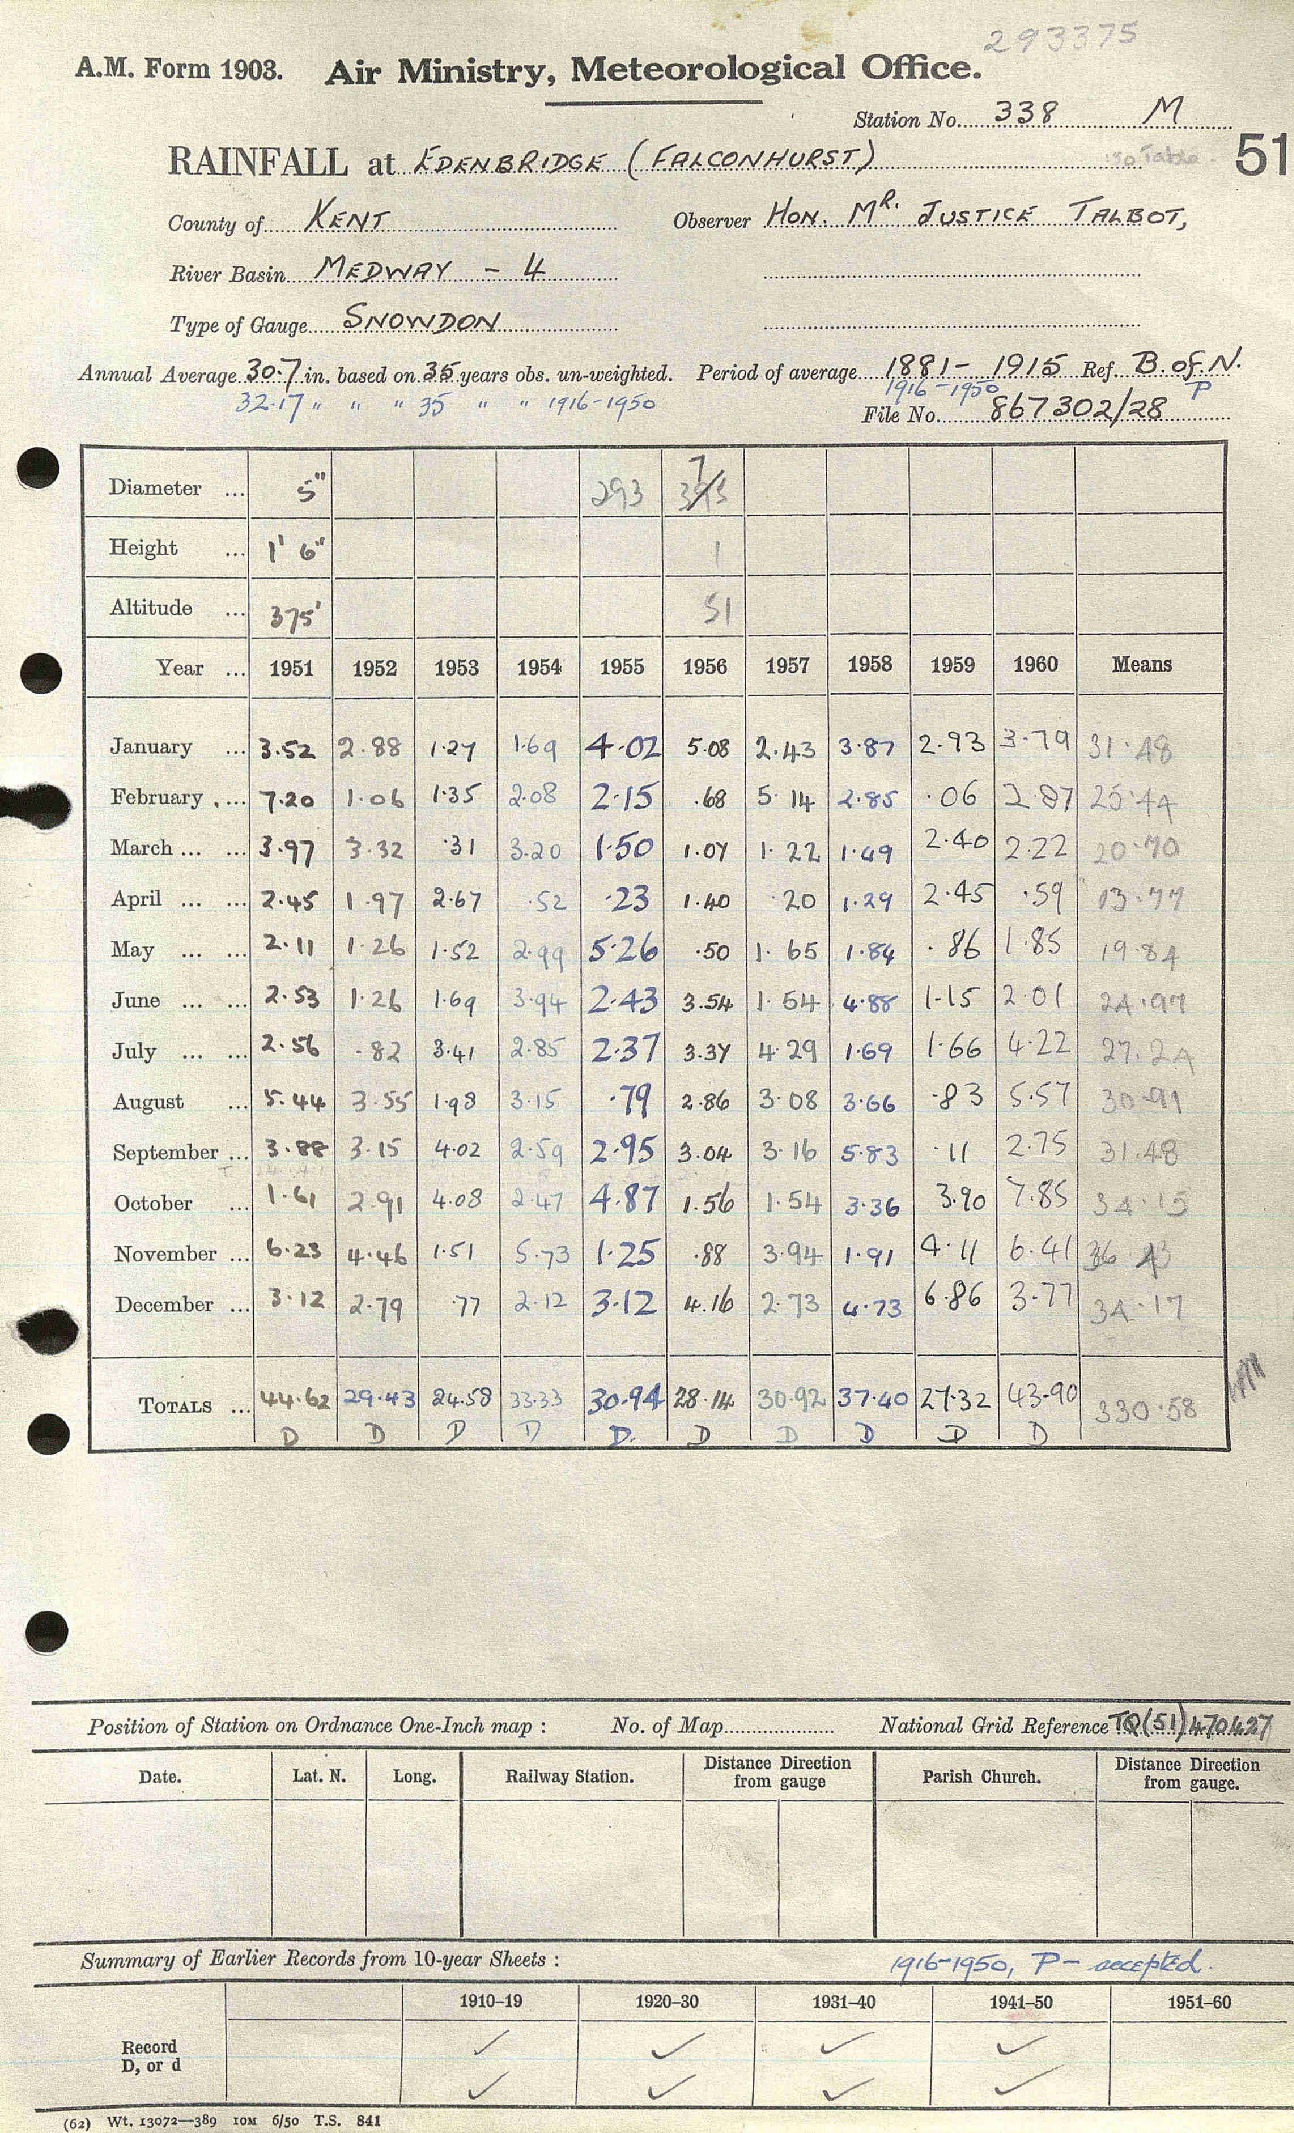 293375
A.M. Form 1903. Air Ministry, Meteorological Office.
Station No. 338 M
RAINFALL at EDENBRIDGE (FALCONHURST) 51
County of KENT Observer HON. MR. JUSTICE TALBOT,
River Basin MEDWAY - 4
Type of Gauge SNOWDON
Annual Average 30.7 in. based on 35 years obs. un-weighted. Period of average 1881 - 1915 Ref. B. of N.
32.17 " " " 35 " " 1916-1950 1916-1950 P
File No. 867302/28
Diameter ... 5" 293 7
Height ... 1' 6" 1
Altitude ... 375' 51
Year ... 1951 1952 1953 1954 1955 1956 1957 1958 1959 1960 Means
January ... 3.52 2.88 1.27 1.69 4.02 5.08 2.43 3.87 2.93 3.79 31.48
February ... 7.20 1.06 1.35 2.08 2.15 .68 5.14 2.85 .06 2.87 25.44
March ... ... 3.97 3.32 .31 3.20 1.50 1.07 1.22 1.49 2.40 2.22 20.70
April ... ... 2.45 1.97 2.67 .52 .23 1.40 .20 1.29 2.45 .59 13.77
May ... ... 2.11 1.26 1.52 2.99 5.26 .50 1.65 1.84 .86 1.85 19.84
June ... ... 2.53 1.26 1.69 3.94 2.43 3.54 1.54 4.88 1.15 2.01 24.97
July ... ... 2.56 .82 3.41 2.85 2.37 3.37 4.29 1.69 1.66 4.22 27.24
August ... 5.44 3.55 1.98 3.15 .79 2.86 3.08 3.66 .83 5.57 30.91
September ... 3.88 3.15 4.02 2.59 2.95 3.04 3.16 5.83 .11 2.75 31.48
October ... 1.61 2.91 4.08 2.47 4.87 1.56 1.54 3.36 3.90 7.85 34.15
November ... 6.23 4.46 1.51 5.73 1.25 .88 3.94 1.91 4.11 6.41 36.43
December ... 3.12 2.79 .77 2.12 3.12 4.16 2.73 4.73 6.86 3.77 34.17
TOTALS ... 44.62 29.43 24.58 33.33 30.94 28.14 30.92 37.40 27.32 43.90 330.58
D D D D D. D D D D D
Position of Station on Ordnance One-Inch map : No. of Map National Grid Reference TQ(51)470427
Date. Lat. N. Long. Railway Station. Distance from gauge Direction Parish Church. Distance from gauge. Direction
Summary of Earlier Records from 10-year Sheets : 1916-1950, P - accepted.
1910–19 1920–30 1931–40 1941–50 1951–60
Record ✓ ✓ ✓ ✓
D, or d ✓ ✓ ✓ ✓
(62) Wt. 13072—389 10M 6/50 T.S. 841